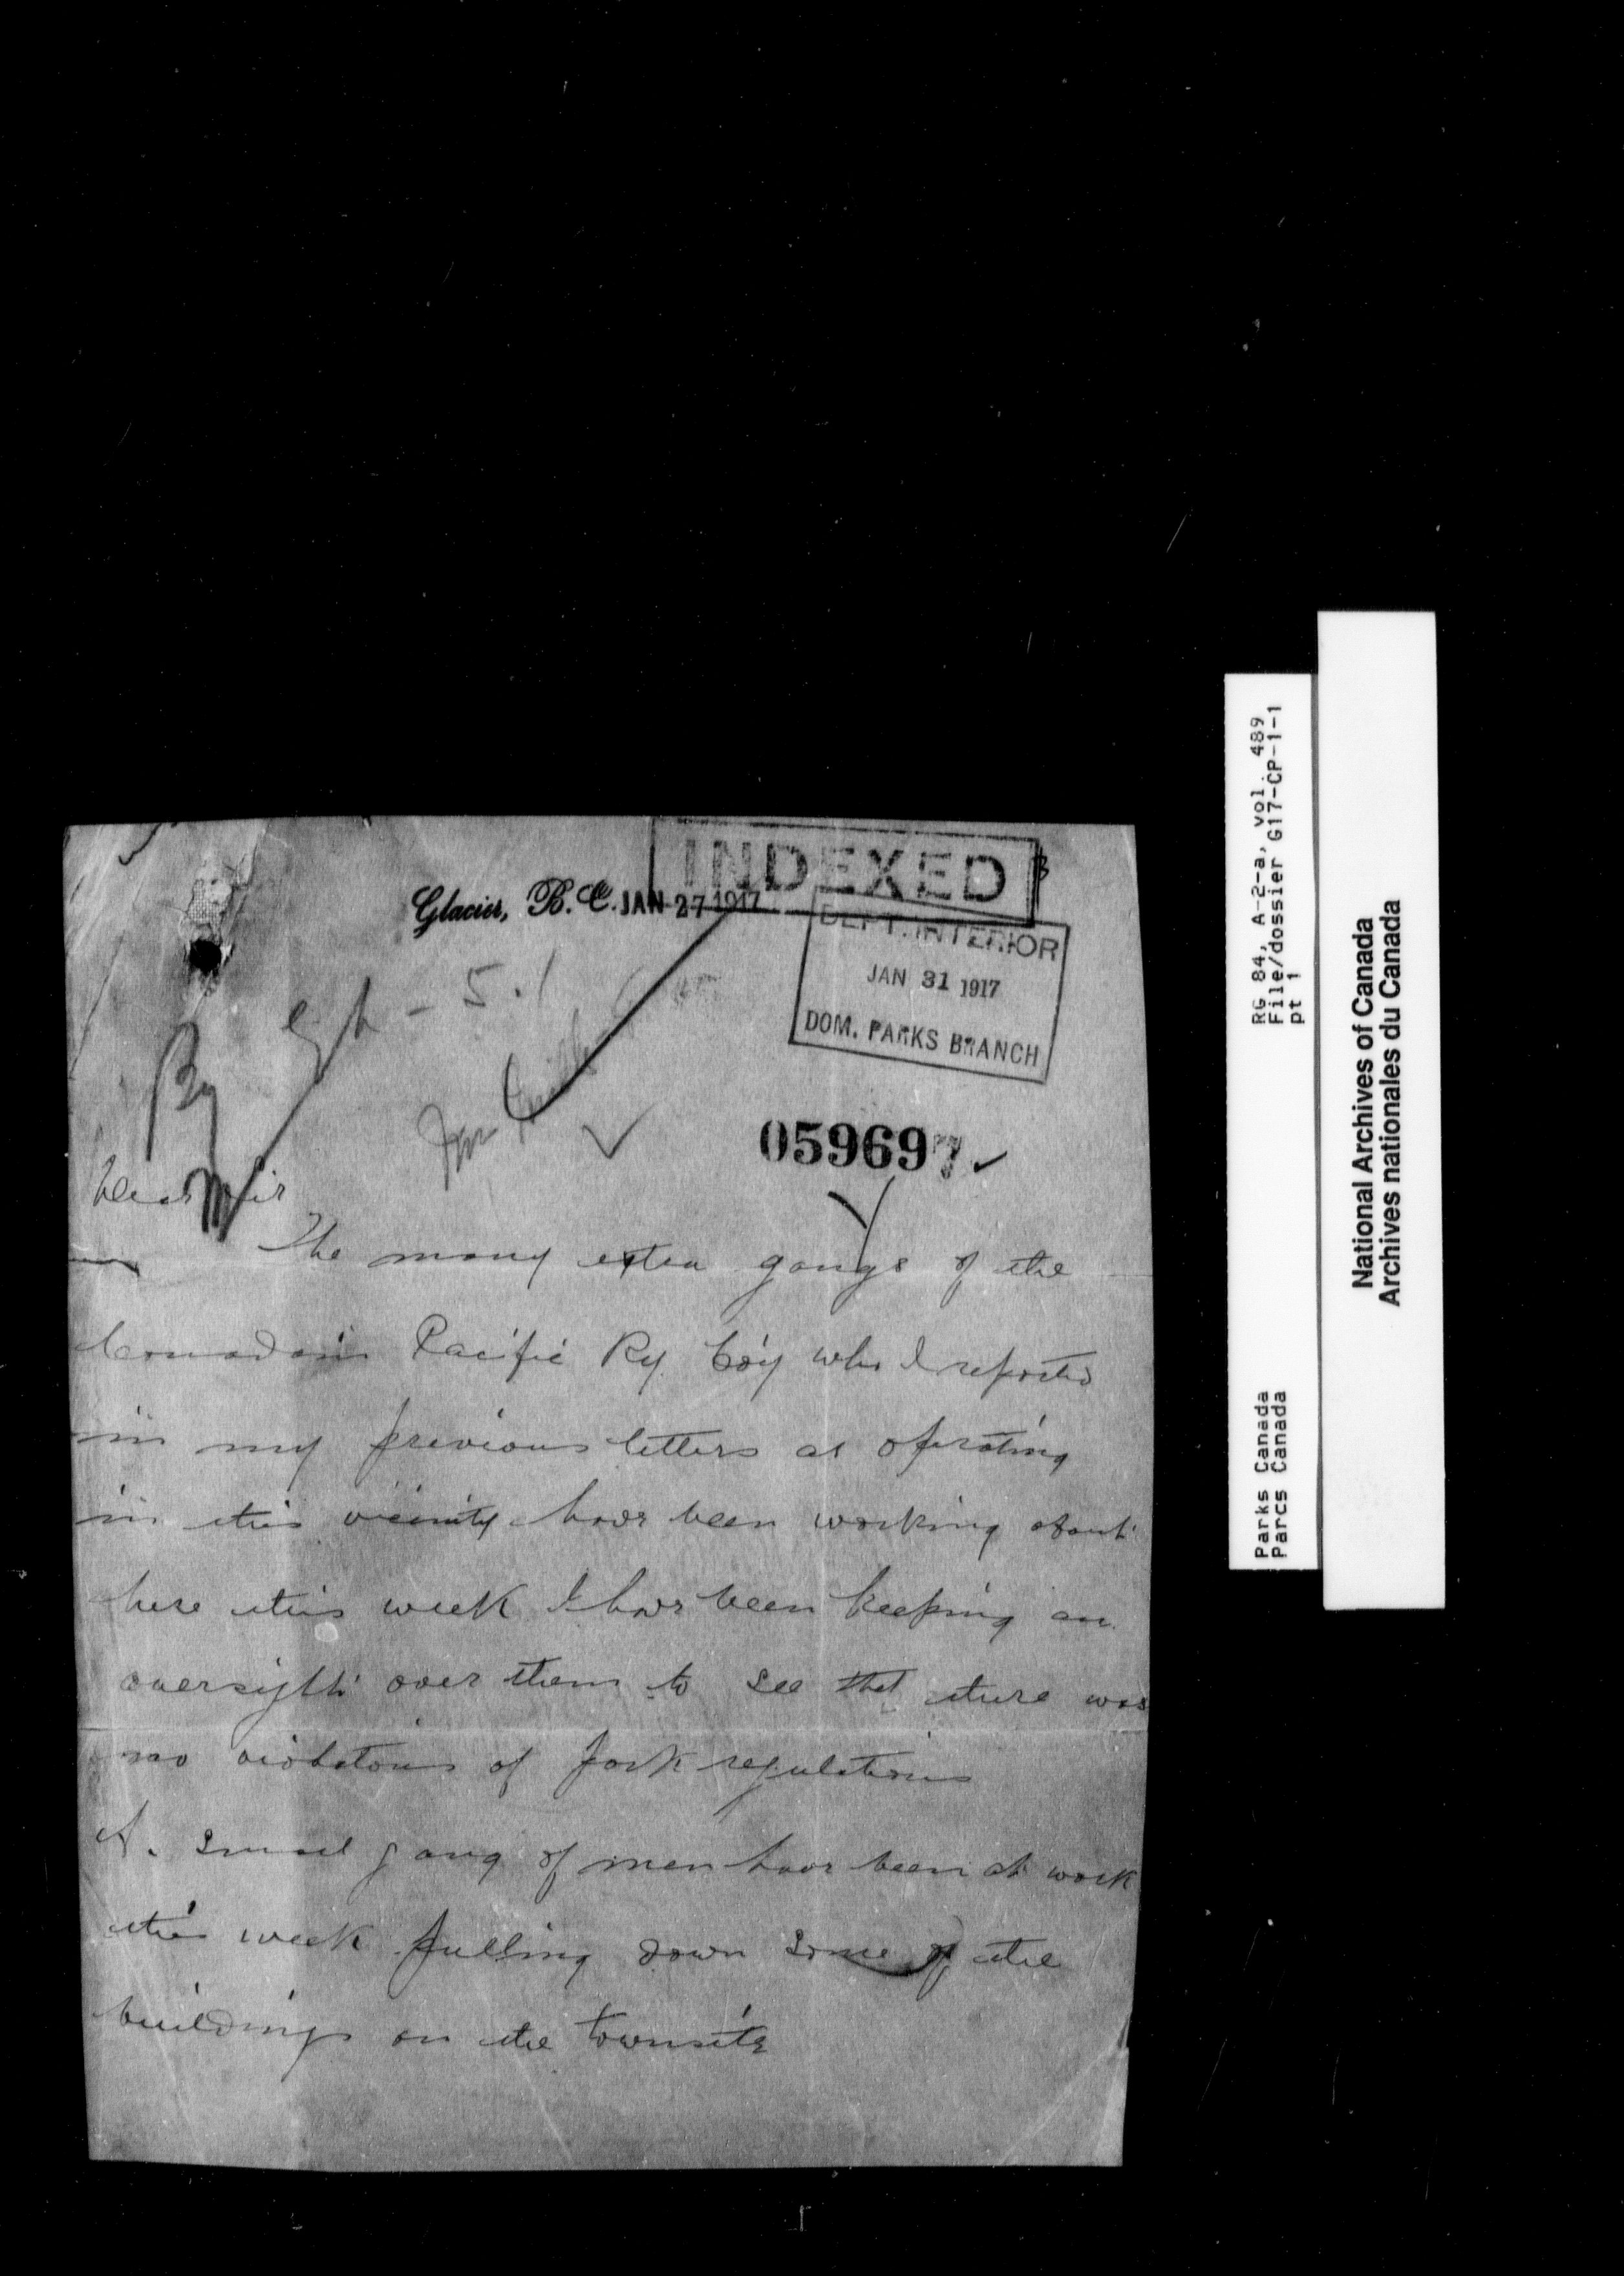 INDEXED
Glacier, B. C. JAN 27 1917
DEPT. INTERIOR
JAN 31 1917
DOM. PARKS BRANCH
059697
Dear Sir
The many extra gangs of the
Canadain Pacific Ry Co'y who I reported
in my previous letters as operating
in this vicinity have been working about
here this week I have been keeping an
oversight over them to see that there was
no violations of park regulations
A small gang of men have been at work
this week pulling down some of the
buildings on the townsite
RG 84, A-2-a, vol. 489
File/dossier G17-CP-1-1
pt 1
Parks Canada
Parcs Canada
National Archives of Canada
Archives nationales du Canada